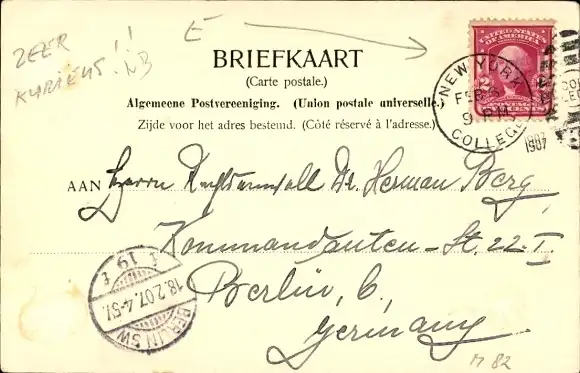 ZEER
KURIEUS!! NB
E
BRIEFKAART
(Carte postale.)
Algemeene Postvereeniging. (Union postale universelle.)
Zijde voor het adres bestemd. (Côté réservé à l'adresse.)
UNITED STATES
OF AMERICA
NEW YORK, N.Y.
FEB 5
9 PM
COLLEGE
1907
1907
AAN Herrn Rechtsanwalt Dr. Herman Berg
Kommandanten-St. 22 I
Berlin, C,
Germany
* 19 *
18.2.07. 4-5N.
BERLIN SW
M 82